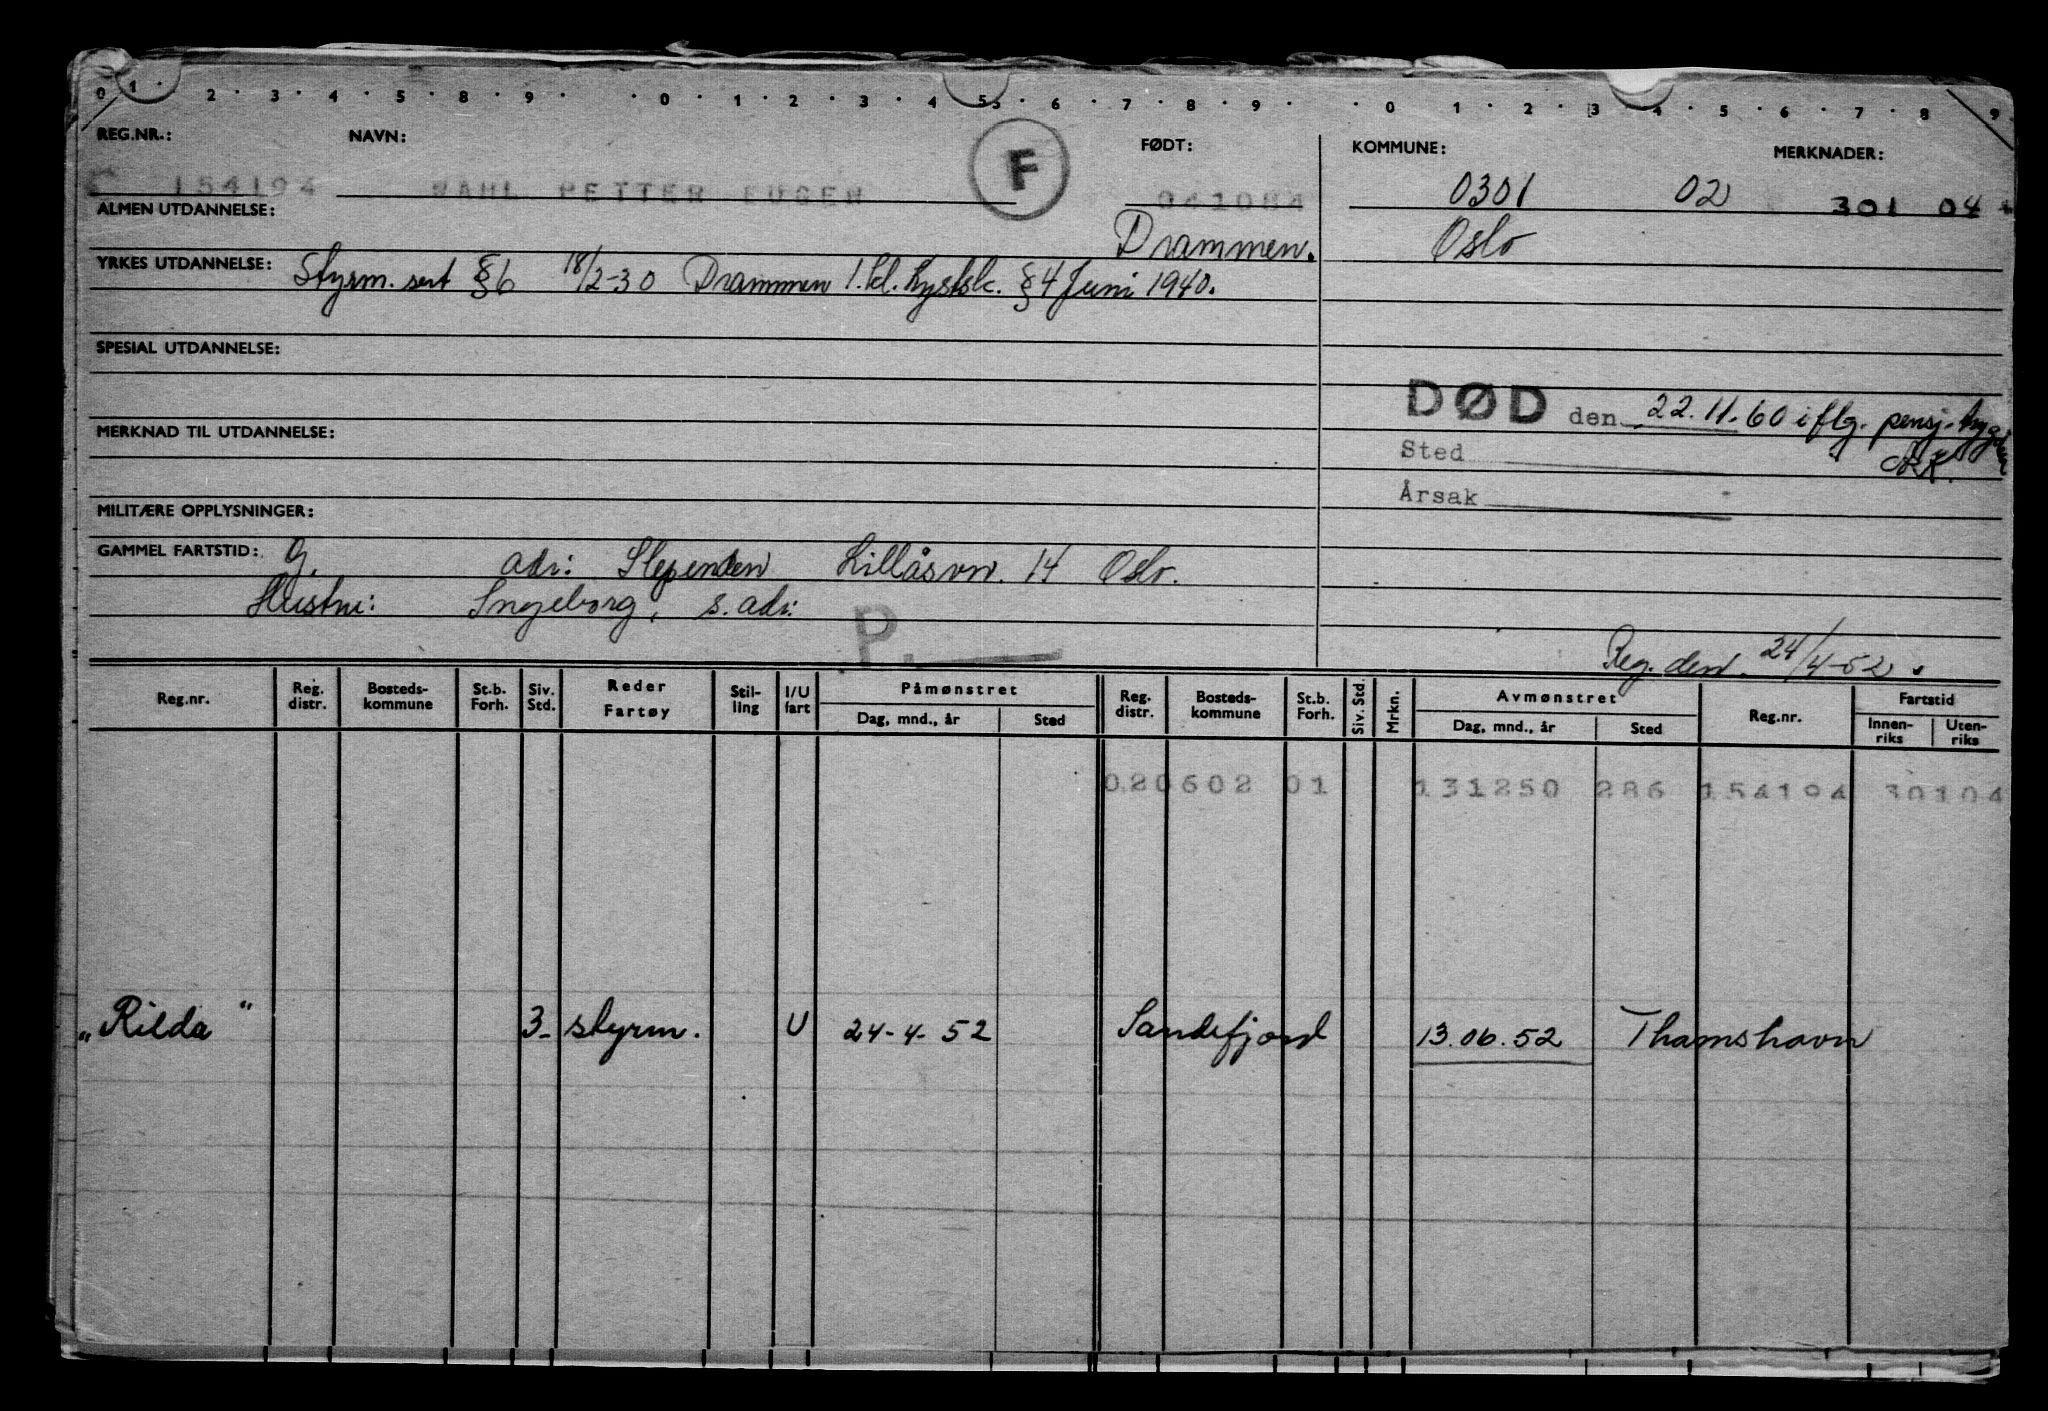 0 1 · 2 · 3 · 4 · 5 · 8 · 9 · · 0 · 1 · 2 · 3 · 4 · 5 · 6 · 7 · 8 · 9 · · 0 · 1 · 2 · 3 · 4 · 5 · 6 · 7 · 8 · 9
REG.NR.: NAVN: F FØDT: KOMMUNE: MERKNADER:
154194 WAHL PETTER EUGEN 041084 0301 02 301 04
ALMEN UTDANNELSE: Drammen. Oslo
YRKES UTDANNELSE: Styrm. sert §6 18/2-30 Drammen 1. kl. kystsk. §4 Juni 1940.
SPESIAL UTDANNELSE:
DØD den 22.11.60 iflg. pensj.
MERKNAD TIL UTDANNELSE:
Sted
Årsak
MILITÆRE OPPLYSNINGER:
GAMMEL FARTSTID: G. adr: Slependen Lillåsvn. 14 Oslo.
Hustru: Ingeborg, s. adr:
P.
Reg. den 24/4-52.
Reg.nr. Reg. distr. Bosteds-kommune St.b. Forh. Siv. Std. Reder Fartøy Stil-ling I/U fart Påmønstret Dag, mnd., år Sted Reg. distr. Bosteds-kommune St.b. Forh. Siv. Std. Mrkn. Avmønstret Dag, mnd., år Sted Reg.nr. Fartstid Innen-riks Uten-riks
020602 01 131250 286 154194 30104
„Rilda" 3- styrm. U 24-4-52 Sandefjord 13.06.52 Thamshavn